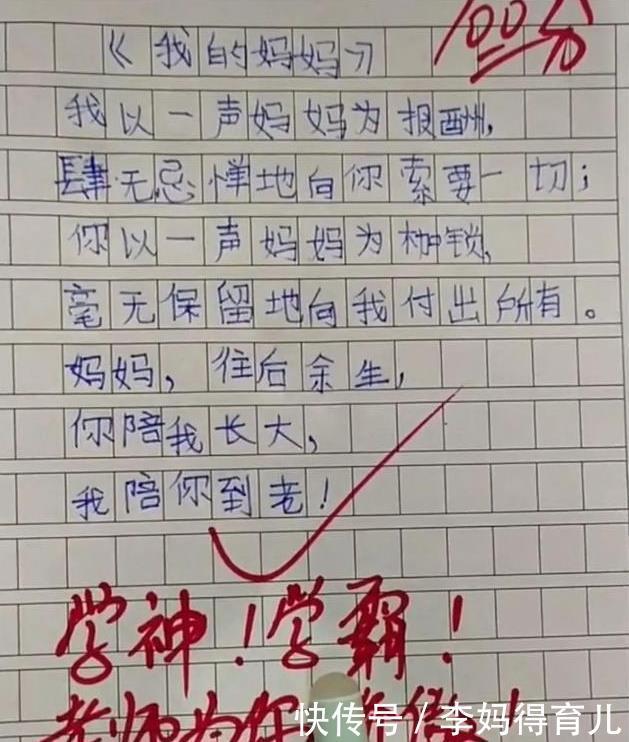 《我的妈妈》
100分
我以一声妈妈为报酬,
肆无忌惮地向你索要一切;
你以一声妈妈为枷锁,
毫无保留地向我付出所有。
妈妈,往后余生,
你陪我长大,
我陪你到老!
学神!学霸!
老师为你
快传号/李妈得育儿